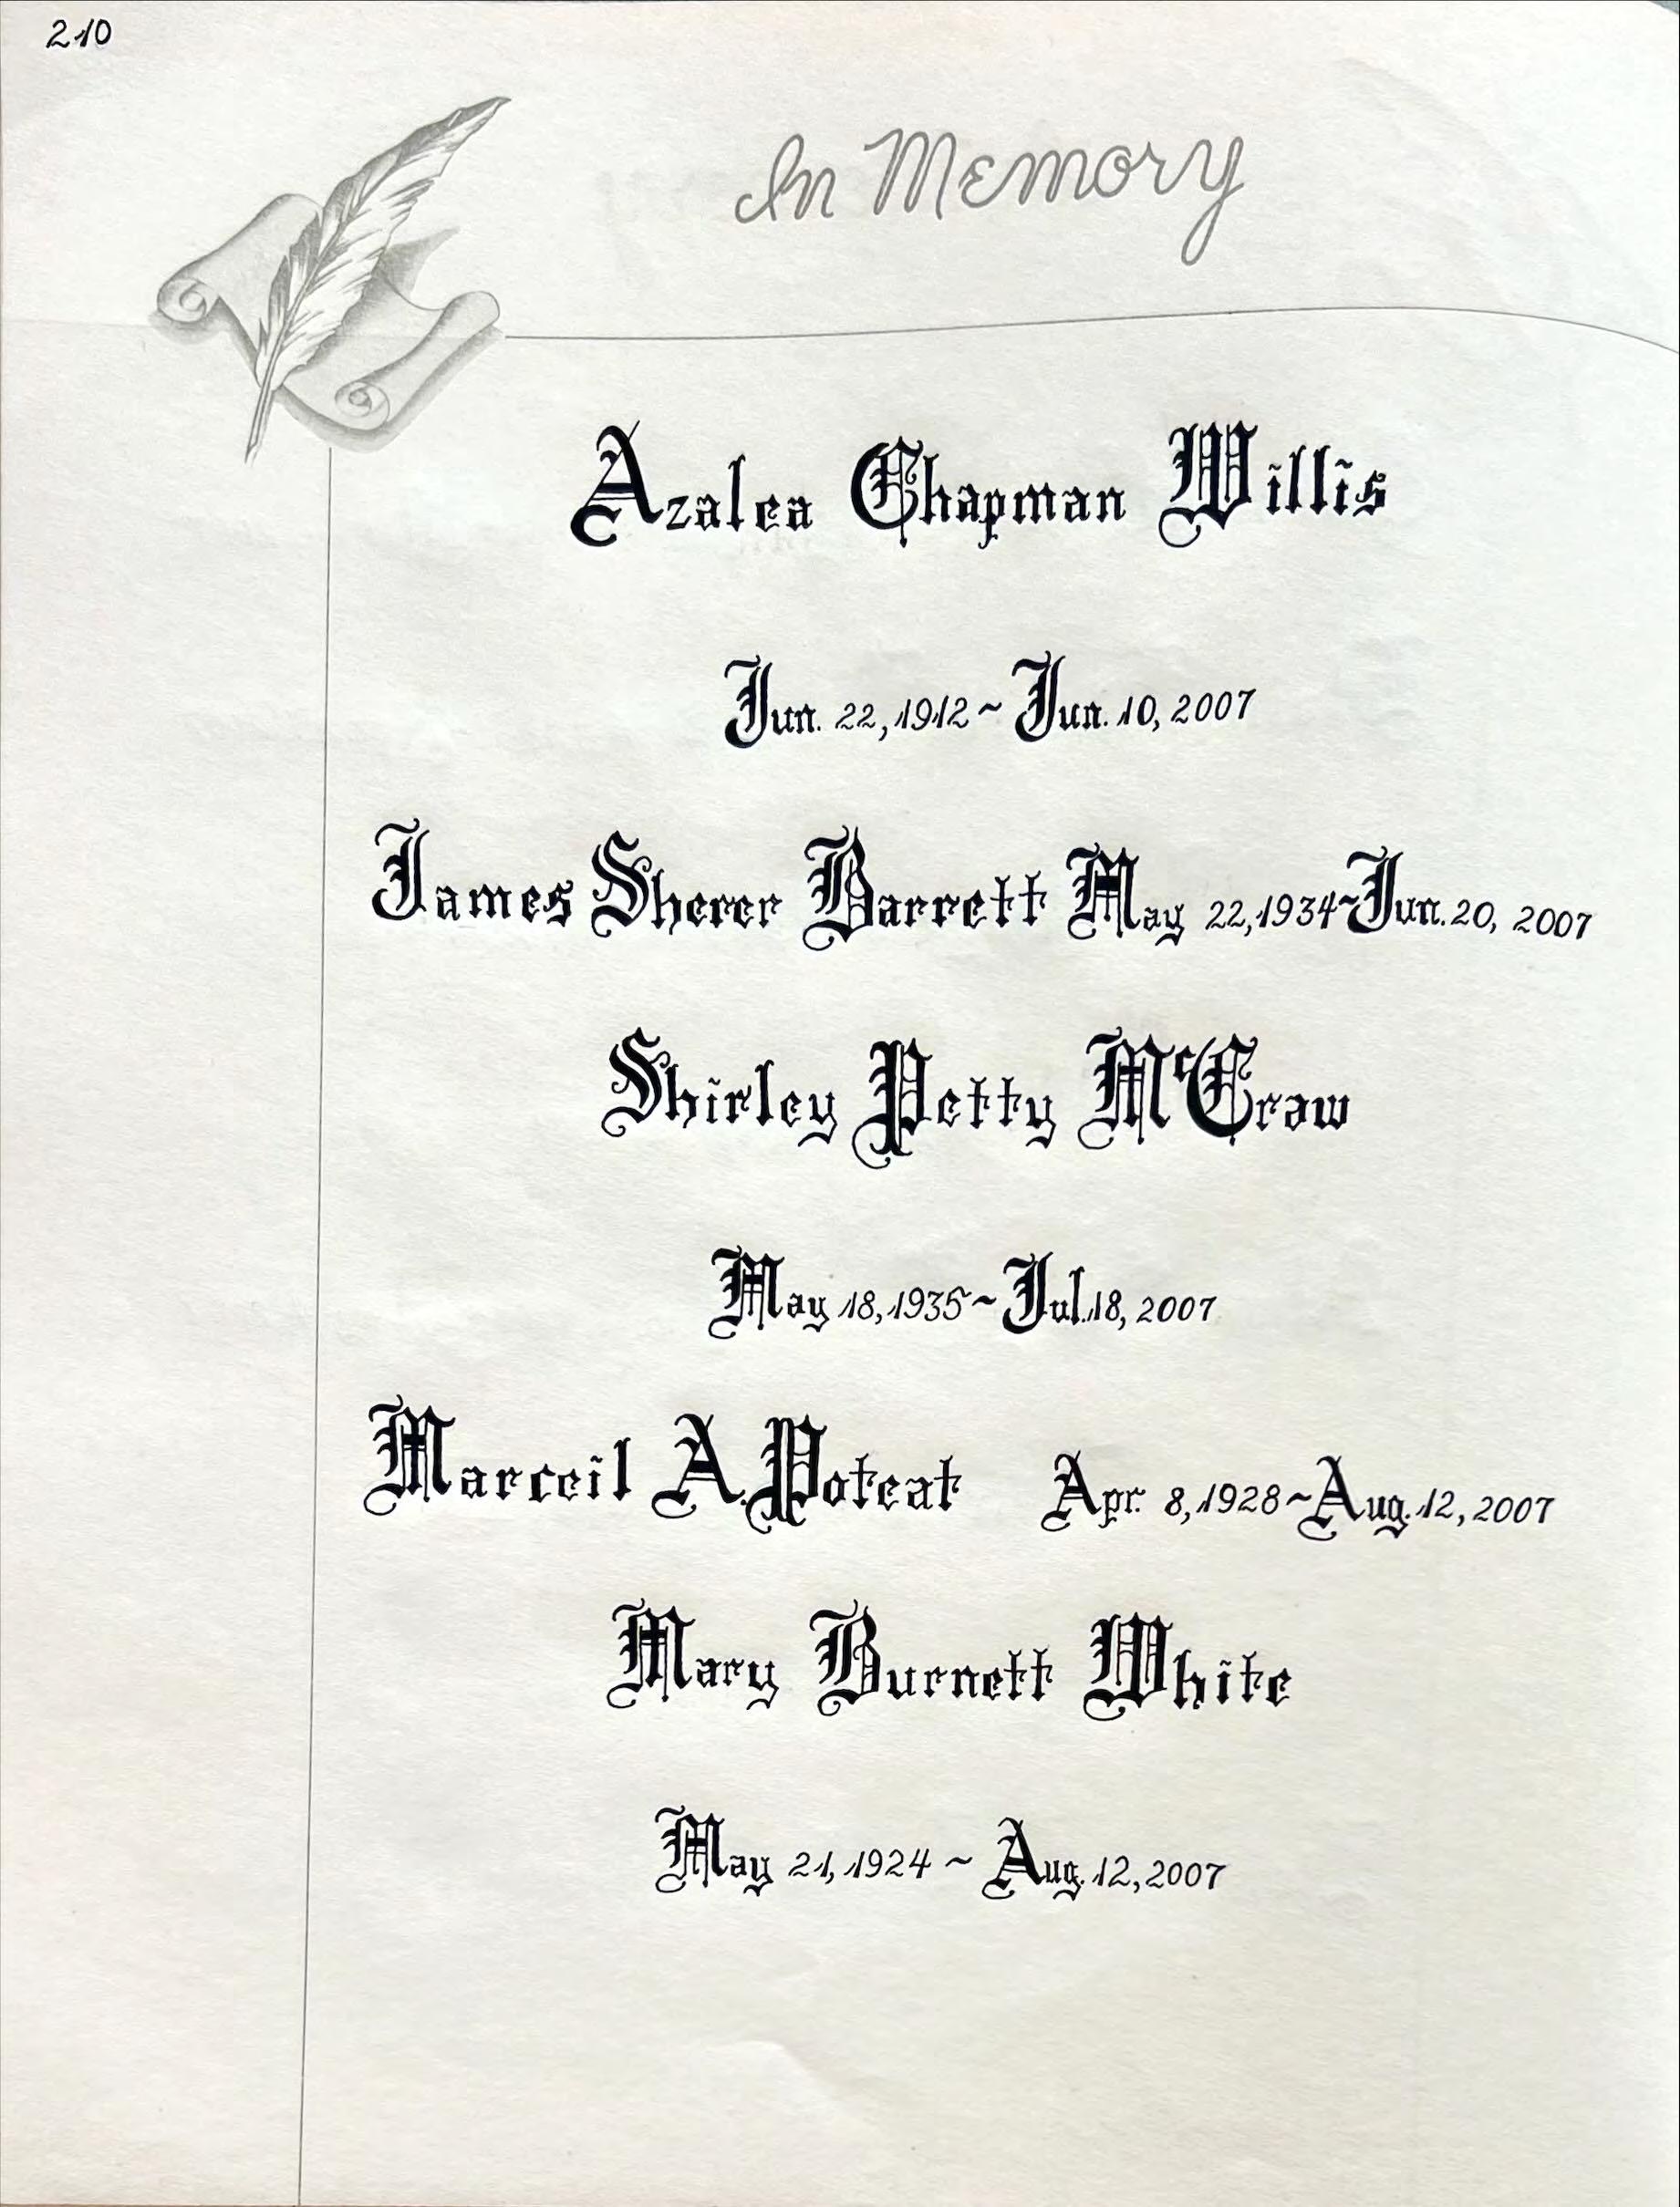 210
In Memory
Azalea Chapman Willis
Jun. 22, 1912 ~ Jun. 10, 2007
James Sherer Barrett May 22, 1934 ~ Jun. 20, 2007
Shirley Petty McCraw
May 18, 1935 ~ Jul. 18, 2007
Marceil A. Poteat Apr. 8, 1928 ~ Aug. 12, 2007
Mary Burnett White
May 21, 1924 ~ Aug. 12, 2007